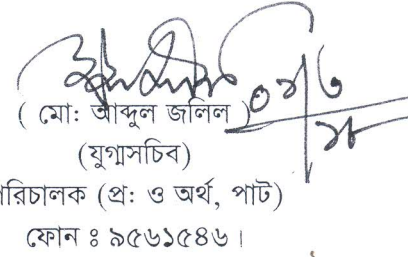 ( মো: আব্দুল জলিল )
(যুগ্মসচিব)
রিচালক (প্র: ও অর্থ, পাট)
ফোন ঃ ৯৫৬১৫৪৬।